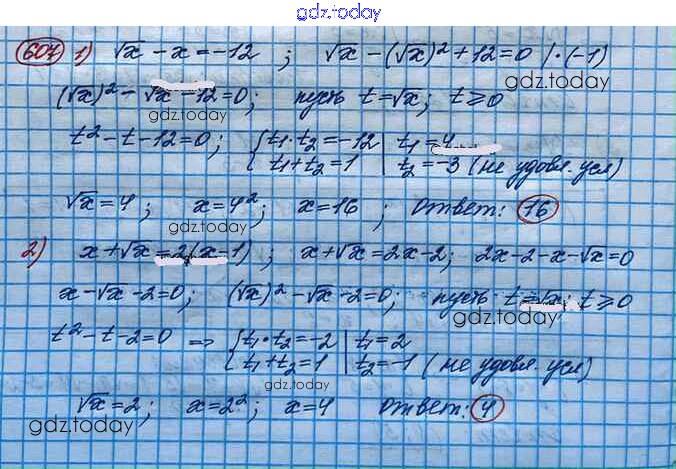 gdz.today
607 1) √x - x = -12 ; √x - (√x)² + 12 = 0 | · (-1)
gdz.today
(√x)² - √x - 12 = 0; пусть t = √x; t ⩾ 0
t² - t - 12 = 0; { t₁ · t₂ = -12 | t₁ = 4
t₁ + t₂ = 1 | t₂ = -3 (не удовл. усл)
gdz.today
√x = 4 ; x = 4² ; x = 16 ; Ответ: 16
gdz.today
2) x + √x = 2(x - 1) ; x + √x = 2x - 2 ; 2x - 2 - x - √x = 0
x - √x - 2 = 0; (√x)² - √x - 2 = 0; пусть t = √x; t ⩾ 0
gdz.today
t² - t - 2 = 0 => { t₁ · t₂ = -2 | t₁ = 2
t₁ + t₂ = 1 | t₂ = -1 (не удовл. усл)
gdz.today
√x = 2 ; x = 2² ; x = 4 Ответ: 4
gdz.today gdz.today